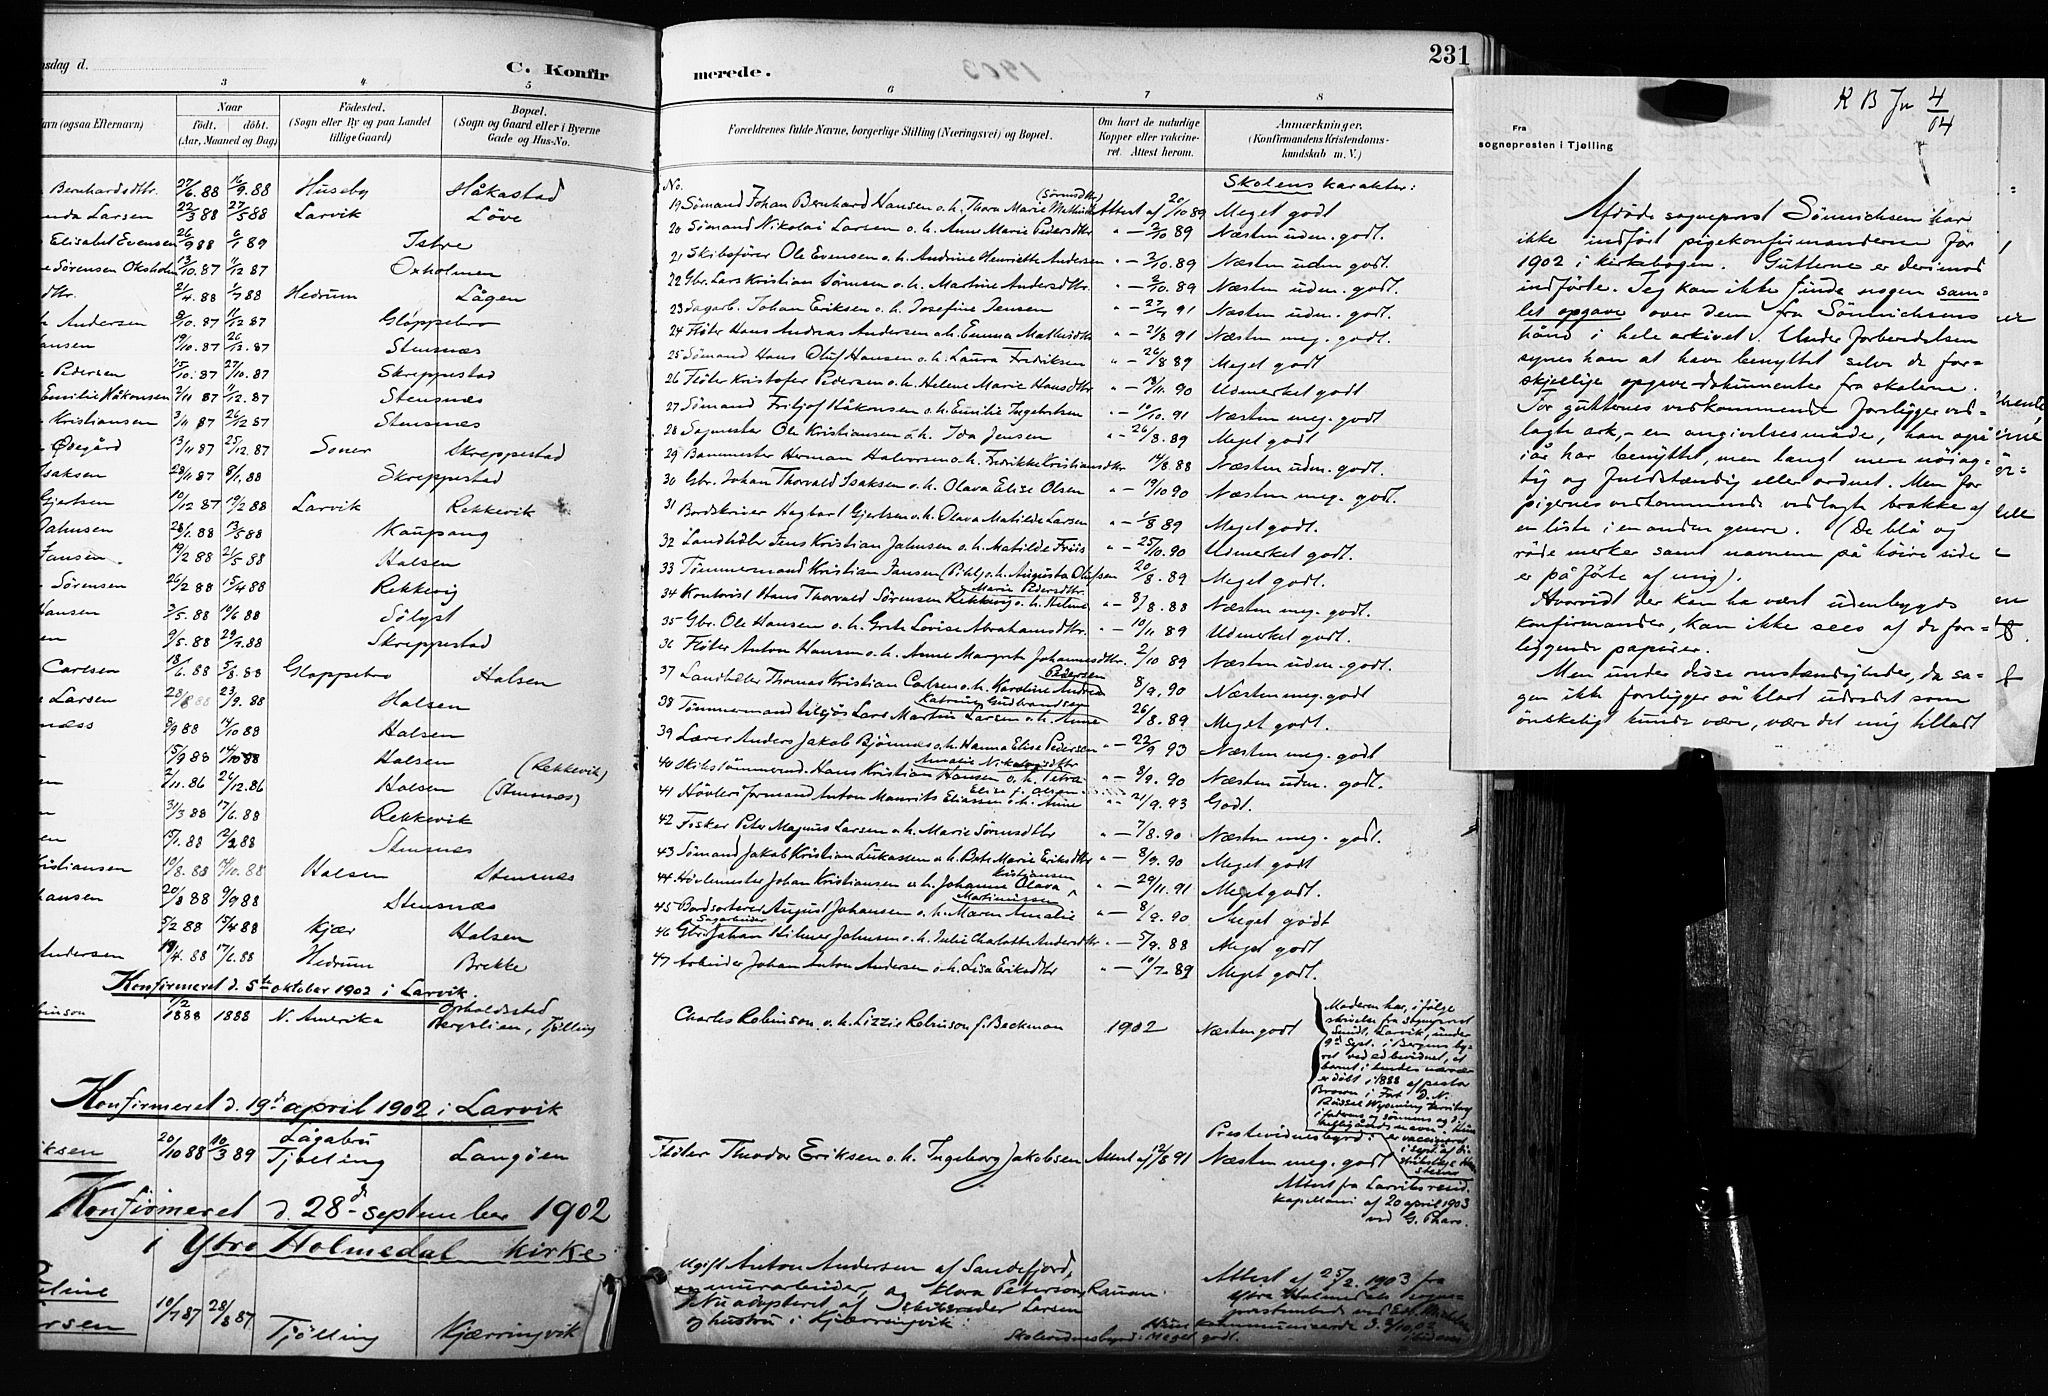 nsdag d.
C. Konfir
3 4 5
Naar
Født. døbt.
(Aar, Maaned og Dag)
Navn (ogsaa Efternavn)
Fødested.
(Sogn eller By og paa Landet tillige Gaard)
Bopæl.
(Sogn og Gaard eller i Byerne Gade og Hus-No.
Bernhardsdtr. 27/6 88 16/9 88 Huseby Håkastad
nda Larsen 22/3 88 27/5 88 Larvik Löve
Elisabet Evensen 26/9 88 6/1 89 Istre
Sörensen Oksholm 13/10 87 11/12 87 Oxholmen
dtr. 21/4 88 1/7 88 Hedrum Lågen
Andersen 8/10 87 11/12 87 Gloppebro
ansen 19/10 87 26/12 87 Stensnæs
Pedersen 15/10 87 27/10 87 Skreppestad
Emilie Håkonsen 2/11 87 11/12 87 Stensnæs
Kristiansen 3/11 87 26/12 87 Stensnæs
Ødegård 13/11 87 25/12 87 Soner Skreppestad
Isaksen 28/11 87 8/1 88 Skreppestad
Gjertsen 10/12 87 19/2 88 Larvik Rekkevik
Jahnsen 28/1 88 13/5 88 Kaupang
Jansen 19/2 88 21/5 88 Halsen
Sörensen 26/2 88 15/4 88 Rekkevig
Hansen 3/5 88 10/6 88 Sölyst
en 9/5 88 29/7 88 Skreppestad
Carlsen 18/6 88 5/8 88 Gloppebro Halsen
Larsen 28/8 88 23/9 88 Halsen
næss 8/9 88 14/10 88 Halsen
15/9 88 14/10 88 Halsen (Rekkevik)
en 2/11 86 26/12 86 Halsen (Stensnæs)
n 31/3 88 17/6 88 Rekkevik
en 15/1 88 12/2 88 Stensnæs
Kristiansen 19/8 88 14/10 88 Halsen Stensnæs
hansen 20/8 88 9/9 88 Stensnæs
5/2 88 15/4 88 Kjær Halsen
Andersen 19/4 88 17/6 88 Hedrum Brekke
Konfirmeret d. 5te oktober 1902 i Larvik.
binson 1/2 1888 1888 N. Amerika Opholdssted Bergslien, Tjölling
Konfirmeret d. 19d april 1902 i Larvik
iksen 20/10 88 10/3 89 Lågabru Tjölling Langöen
Konfirmeret d. 28d september 1902
i Ytre Holmedal kirke
line
rsen 10/7 87 28/8 87 Tjölling Kjærringvik
merede.
1903
231
6 7 8
Forældrenes fulde Navne, borgerlige Stilling (Næringsvei) og Bopæl.
Om havt de naturlige Kopper eller vaccineret. Attest herom.
Anmærkninger.
(Konfirmandens Kristendomskundskab m. V.)
No.
Skolens karakter:
19 Sömand Johan Bernhard Hansen o.h. Thora Marie Mathilde (Sörensdtr) Attest af 20/10 89 Meget godt
20 Sömand Nikolai Larsen o.h. Anne Marie Pedersdtr " — 2/10 89 Næsten uden. godt.
21 Skibsförer Ole Evensen o.h. Andrine Henriette Andersen " — 3/10. 89 Næsten uden godt.
22 Gbr. Lars Kristian Sörensen o.h. Martine Andersdtr. " — 2/10. 89 Næsten uden. godt.
23 Sagarb. Johan Eriksen o.h. Josefine Jensen " — 27/7 91 Næsten uden. godt.
24 Fløter Hans Andreas Andersen o.h. Emma Mathisdtr " — 21/8 91 Næsten meg. godt.
25 Sömand Hans Oluf Hansen o.h. Laura Fredriksen " — 26/8 89 Meget godt
26 Fløter Kristofer Pedersen o.h. Helene Marie Hansdtr " — 13/11. 90 Udmerket godt
27 Sömand Fritjof Håkonsen o.h. Emilie Ingebretsen " — 10/10. 91 Næsten meg. godt
28 Sagmester Ole Kristiansen o.h. Ida Jensen " — 26/8. 89 Meget godt
29 Banemester Herman Halvorsen o.h. Fredrikke Kristiansdtr 14/8 88 Næsten uden. godt.
30 Gbr. Johan Thorvald Isaksen o.h. Olava Elise Olsen " — 19/10 90 Næsten meg. godt.
31 Bordskriver Hagbart Gjertsen o.h. Olava Matilde Larsen " — 1/8 89 Meget godt.
32 Landhdlr Jens Kristian Jahnsen o.h. Matilde Friis " — 25/10. 90 Udmerket godt.
33 Tömmermand Kristian Jansen (Pihl) o.h. Augusta Olufsen 20/8. 89 Meget godt.
34 Kontorist Hans Thorvald Sörensen Rekkevig o.h. Helene Marie Pedersdtr. " — 8/8. 88 Næsten meg. godt.
35 Gbr. Ole Hansen o.h. Grete Lovise Abrahamsdtr. " — 10/11 89 Udmerket godt.
36 Fløter Anton Hansen o.h. Anne Margrete Johannesdtr. 2/10 89 Næsten uden. godt.
37 Landhdler Thomas Kristian Carlsen o.h. Karoline Andrea Pedersen 8/9. 90 Næsten meg. godt
38 Tömmermand tilsjös Lars Martin Larsen o.h. Anne Katrine Gudbrandsen 26/8. 89 Meget godt.
39 Lærer Anders Jakob Bjönnes o.h. Hanna Elise Pedersen " — 22/9 93 Næsten meg. godt
40 Skibstömmermd. Hans Kristian Hansen o.h. Petra Amalie Nikolaisdtr " — 8/9. 90 Næsten uden. godt.
41 Hövleriformand Anton Maurits Eliassen o.h. Anne Elise f. Olsen " — 2/9. 93 Godt.
42 Fisker Peter Magnus Larsen o.h. Marie Sörensdtr " — 7/8. 90 Næsten meg. godt.
43 Sömand Jakob Kristian Lukassen o.h. Berte Marie Eriksdtr " — 8/9. 90 Meget godt
44 Hövlemester Johan Kristiansen o.h. Johanne Olava Kristiansen " — 29/11. 91 Meget godt.
45 Bordsorterer August Johansen o.h. Maren Amalie Martinissen " — 8/9. 90 Meget godt
46 Gbr. Sagarbeider Johan Hilmer Jahnsen o.h. Julie Charlotte Andersdtr — 5/9. 88 Meget godt
47 Arbeider Johan Anton Andersen o.h. Lisa Eriksdtr " — 10/7. 89 Meget godt.
Charles Robinson o.h. Lizzie Robinson f. Beckman 1902 Næsten godt
Moderen har, i følge
skrivelse fra sogneprest
Smidt, Larvik, under
9de Sept. i Bergens by-
ret ved ed bevidnet, at
barnet i hendes nærvær
er døbt i 1888 af pastor
Brown i Fort D. N.
Russel Wyoming Territory
er vaccineret
Prestevidnesbyrd:
Fløter Theodor Eriksen o.h. Ingeborg Jakobsen Attest af 12/8 91 Næsten meg. godt
Attest fra Larviks resid.
kapellani af 20 april 1903
ved G. Thars.
Ugift Anton Andersen af Sandefjord,
murarbeider, og Klara Peterson, Rauan.
Nu adopteret af Skibsreder Larsen
og hustru i Kjærringvik.
Attest af 25/2. 1903 fra
Ytre Holmedals sogne-
prestembede ved
Hun kommunicerede d. 3/10. 02
Skolevidnesbyrd: Meget godt.
K B Jn 4/04
Fra
sognepresten i Tjølling
Afdøde sogneprest Sönnichsen har
ikke indfört pigekonfirmanderne for
1902 i kirkebogen. Gutterne er derimod
indförte. Jeg kan ikke finde nogen sam-
let opgave over dem fra Sönnichsens
hånd i hele arkivet. Under forberedelsen
synes han at have benyttet selve de for-
skjellige opgave-dokumenter fra skolerne.
For gutternes vedkommende foreligger ved-
lagte ark, - en angivelsesmåde, han også
iår har benyttet, men langt mere nöiag-
tig og fuldstændig eller ordnet. Men for
pigernes vedkommende vedlagte brokke af
en liste i en anden genre. (De blå og
röde merker samt navnene på höire side
er påförte af mig).
Hvorvidt der kan ha været udenbygds
konfirmander, kan ikke sees af de fore-
liggende papirer.
Men under disse omstændigheder, da sa-
gen ikke foreligger så klart udredet som
önskeligt kunde være, være det mig tilladt